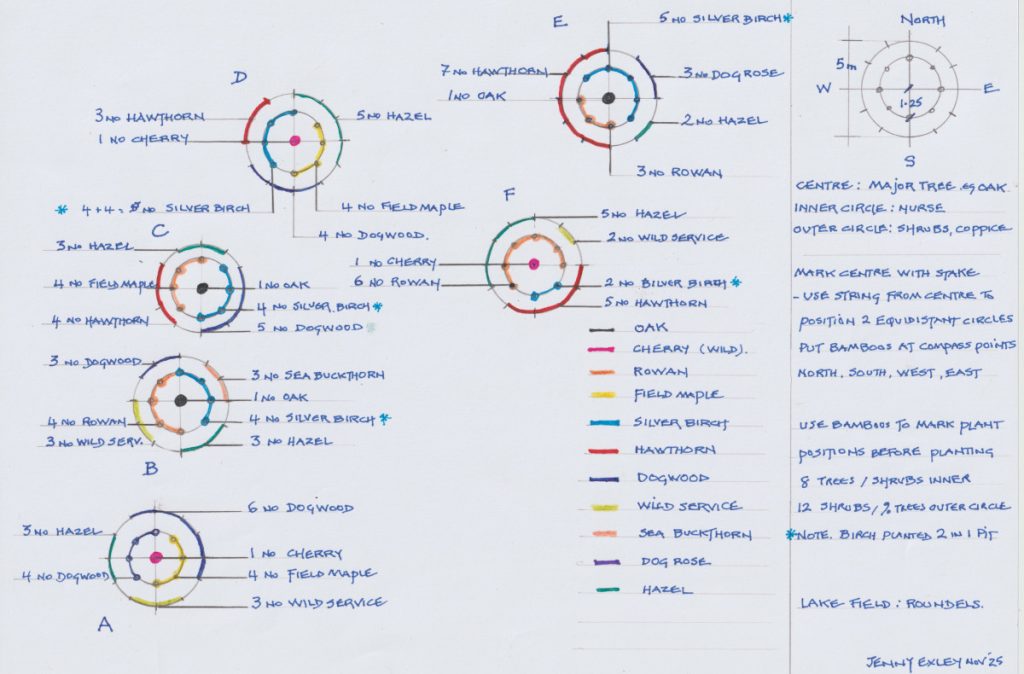 E
5 NO SILVER BIRCH *
7 NO HAWTHORN
1 NO OAK
3 NO DOG ROSE
2 NO HAZEL
3 NO ROWAN
D
3 NO HAWTHORN
1 NO CHERRY
5 NO HAZEL
* 4+4 = NO SILVER BIRCH
4 NO FIELD MAPLE
4 NO DOGWOOD.
C
3 NO HAZEL
4 NO FIELD MAPLE
4 NO HAWTHORN
1 NO OAK
4 NO SILVER. BIRCH *
5 NO DOGWOOD
F
5 NO HAZEL
2 NO WILD SERVICE
1 NO CHERRY
6 NO ROWAN
2 NO SILVER BIRCH *
5 NO HAWTHORN
3 NO DOGWOOD
3 NO SEA BUCKTHORN
1 NO OAK
4 NO ROWAN
4 NO SILVER BIRCH *
3 NO WILD SERV.
3 NO HAZEL
B
6 NO DOGWOOD
3 NO HAZEL
1 NO CHERRY
4 NO DOGWOOD
4 NO FIELD MAPLE
3 NO WILD SERVICE
A
OAK
CHERRY (WILD).
ROWAN
FIELD MAPLE
SILVER BIRCH
HAWTHORN
DOGWOOD
WILD SERVICE
SEA BUCKTHORN
DOG ROSE
HAZEL
NORTH
5m
W
E
1.25
S
CENTRE: MAJOR TREE eg OAK.
INNER CIRCLE: NURSE
OUTER CIRCLE: SHRUBS, COPPICE
MARK CENTRE WITH STAKE
- USE STRING FROM CENTRE TO
POSITION 2 EQUIDISTANT CIRCLES
PUT BAMBOOS AT COMPASS POINTS
NORTH, SOUTH, WEST, EAST
USE BAMBOOS TO MARK PLANT
POSITIONS BEFORE PLANTING
8 TREES / SHRUBS INNER
12 SHRUBS / TREES OUTER CIRCLE
* NOTE. BIRCH PLANTED 2 IN 1 PIT
LAKE FIELD: ROUNDELS.
JENNY EXLEY NOV '25